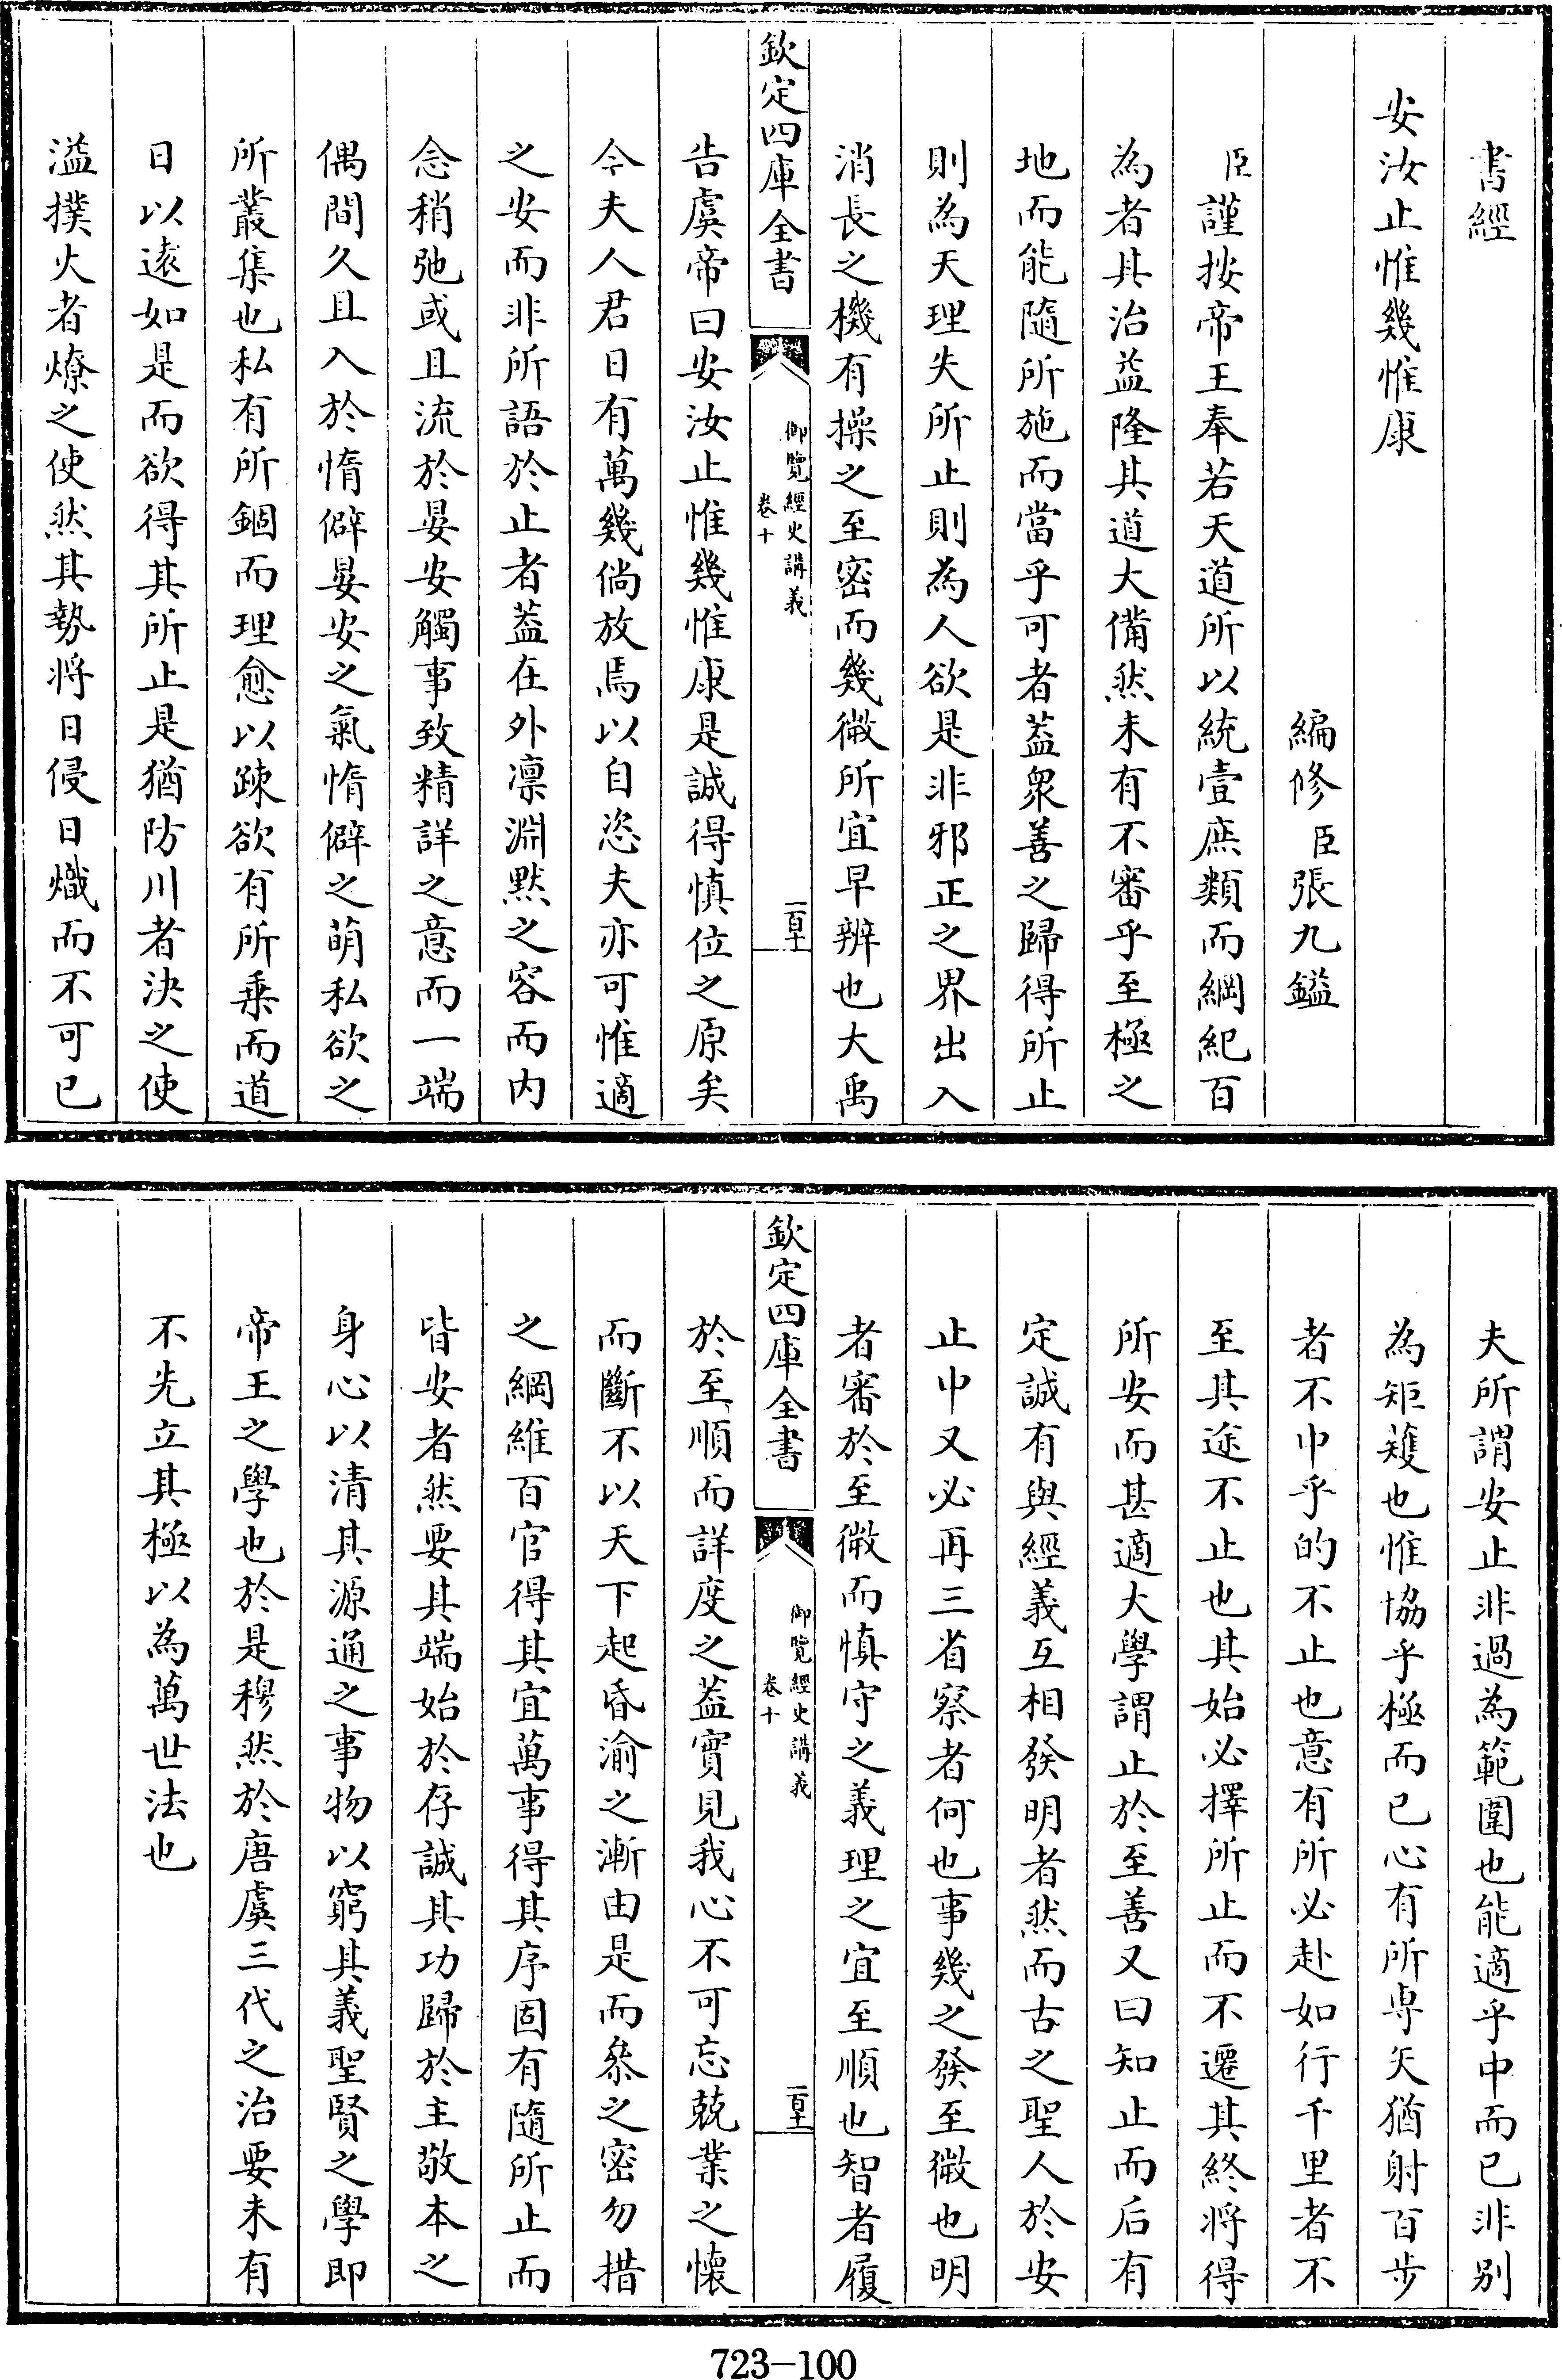 書經
安汝止惟幾惟康
編修臣張九鎰
臣謹按帝王奉若天道所以統壹庶類而綱紀百
為者其治益隆其道大備然未有不審乎至極之
地而能隨所施而當乎可者葢衆善之歸得所止
則為天理失所止則為人欲是非邪正之界出入
消長之機有操之至密而幾微所宜早辨也大禹
欽定四庫全書
御覽經史講義
卷十
一百十
告虞帝曰安汝止惟幾惟康是誠得慎位之原矣
今夫人君日有萬幾倘放焉以自恣夫亦可惟適
之安而非所語於止者葢在外凛淵默之容而内
念稍弛或且流於晏安觸事致精詳之意而一端
偶間久且入於惰僻晏安之氣惰僻之萌私欲之
所叢集也私有所錮而理愈以踈欲有所乗而道
日以逺如是而欲得其所止是猶防川者決之使
溢撲火者燎之使然其勢将日侵日熾而不可已
夫所謂安止非過為範圍也能適乎中而已非别
為矩矱也惟協乎極而已心有所専矢猶射百步
者不中乎的不止也意有所必赴如行千里者不
至其途不止也其始必擇所止而不遷其終将得
所安而甚適大學謂止於至善又曰知止而后有
定誠有與經義互相發明者然而古之聖人於安
止中又必再三省察者何也事幾之發至微也明
者審於至微而慎守之義理之宜至順也智者履
欽定四庫全書
御覽經史講義
卷十
於至順而詳度之葢實見我心不可忘兢業之懐
而斷不以天下起昏渝之漸由是而叅之宻勿措
之綱維百官得其宜萬事得其序固有隨所止而
皆安者然要其端始於存誠其功歸於主敬本之
身心以清其源通之事物以窮其義聖賢之學即
帝王之學也於是穆然於唐虞三代之治要未有
不先立其極以為萬世法也
723-100